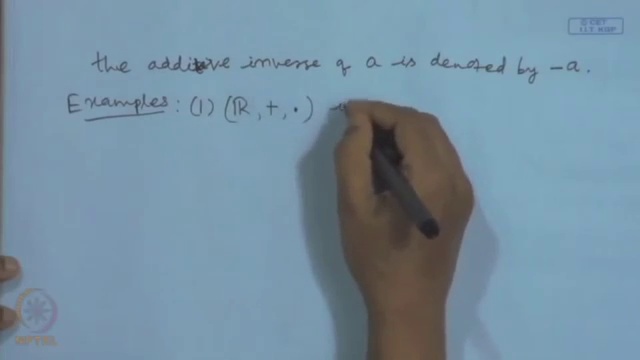 © CET
I.I.T. KGP
the additive inverse of a is denoted by -a.
Examples: (1) (ℝ, +, ·)
NPTEL